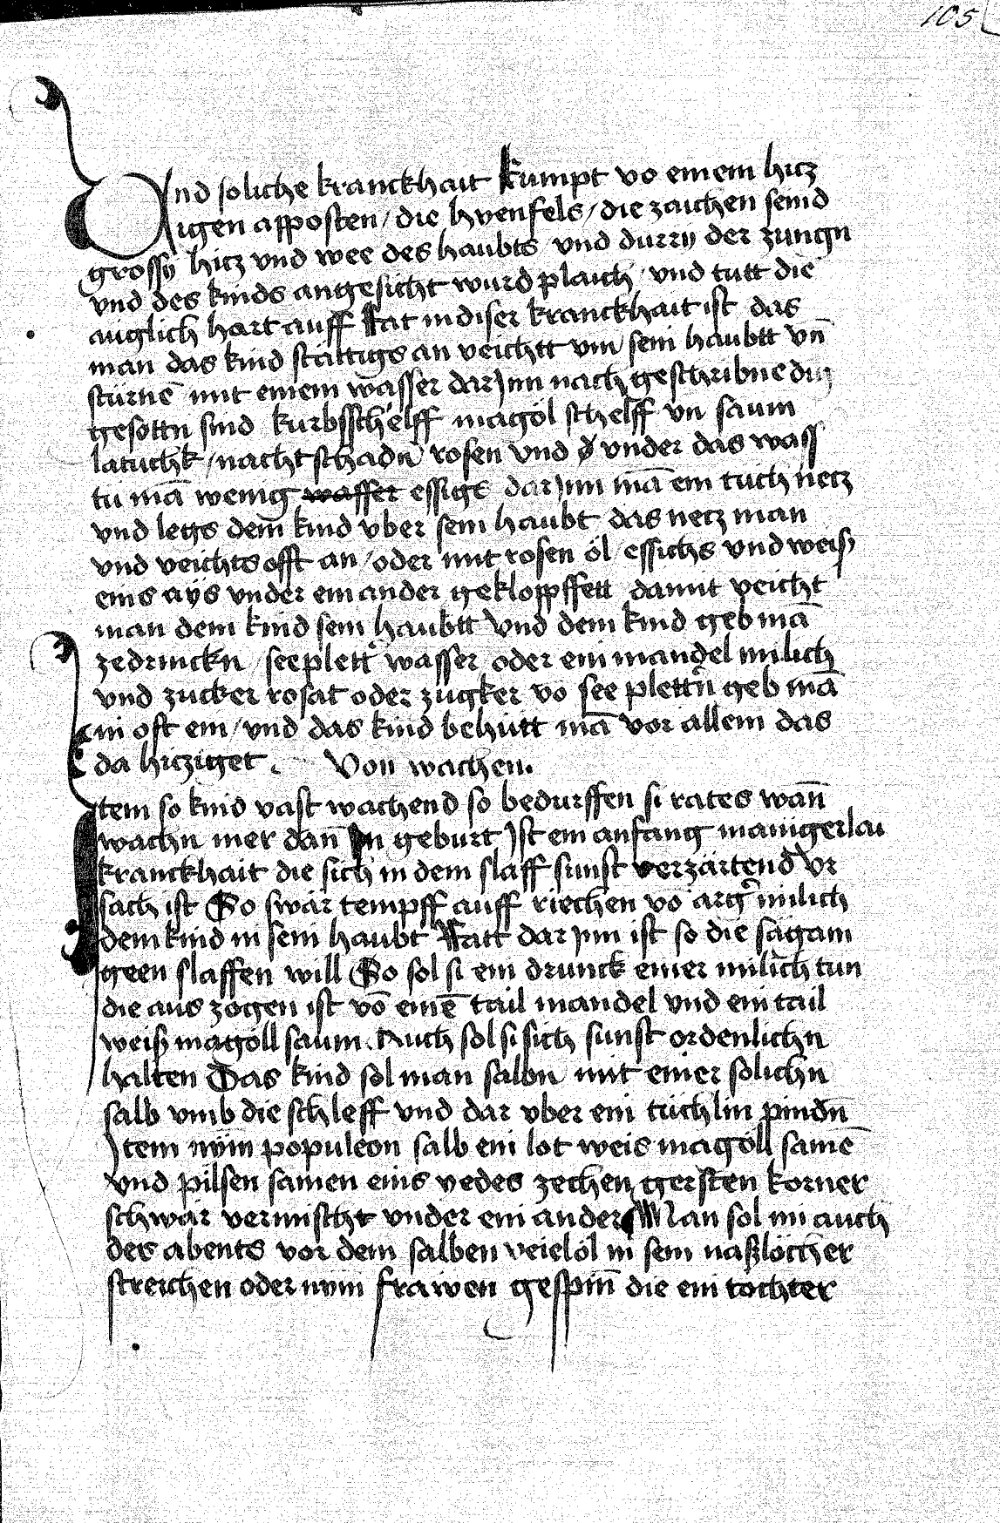 105
Und soliche kranckhait kumpt vo einem hitz
igen apposten / die hirenfels / die zaichen seind
grossy hitz vnd wee des haubts vnd durry der zungn
vnd des kinds angesicht wurd plaich / vnd tutt die
auglich hart auff Rat in diser kranckhait ist das
man das kind stättigs an veichtt vm sein haubtt vn̄
stürnē mit einem wasser dar jnn nach geschribne ding
gesottn sind kurbsschelff magöl schelff vn saum
latuchk / nacht schadn rosen vnd vnder das wass
tü mā wenig wasser essigs dar jnn mā ein tuch netz
vnd legs dem kind vber sein haubt das netz man
vnd veichts offt an / oder mit rosen öl / essichs vnd weiß
eins ays vnder ein ander geklopffett damit veicht
man dem kind sein haubtt Vnd dem kind geb mā
zedrinckn / seeplett wasser oder ein mandel milich
vnd zucker rosat oder zugker vo see plettn geb mā
im oft ein / vnd das kind behütt mā vor allem das
da hitziget . Von wachen.
Item so kind vast wachend so bedurffen si rates wan̄
wachn mer dan̄ In geburt Ist ein anfang manigerlai
kranckhait die sich in dem slaff sunst verzärtend Vr
sach ist So swär tempff auff riechen vō arg milich
dem kind in sein haubt Ratt dar jnn ist so die sägam
geen slaffen will So sol si ein drunck einer milich tun
die aus zogen ist vō einē tail mandel vnd ein tail
weiß magöll saum . Auch sol si sich sunst ordenlichn
halten Das kind sol man salbn mit einer solichn
salb vmb die schleff vnd dar vber ein tüchlin pindn̄
Item nym populeon salb ein lot weis magöll samē
vnd pilsen samen eins yedes zechen gersten korner
schwär vermischt vnder ein ander Man sol im auch
des abents vor dem salben veielöl in sein naßlöcher
streichen oder nym frawen gespin̄ die ein tochter